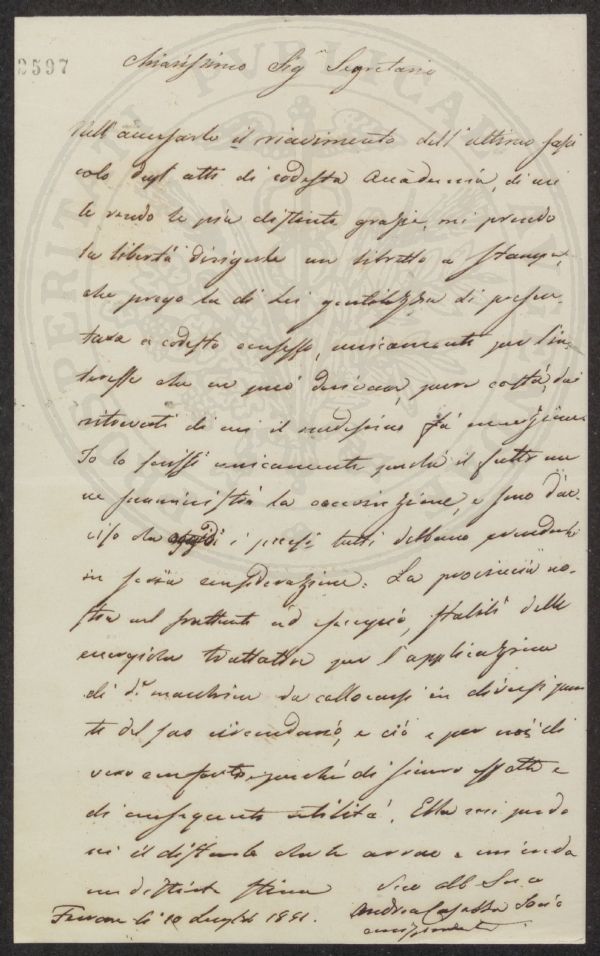 2597
Chiarissimo Sig.r Segretario
Nell'accusarle il ricevimento dell'ultimo fasci
colo degl'atti di codesta Accademia, di cui
le rendo le più distinte grazie, mi prendo
la libertà dirigerle un libretto a stampa,
che prego la di Lei gentilezza di presen-
tare a codesto consesso, unicamente per l'in-
teresse che ne può derivare, pure costà, dai
ritrovati di cui il medesimo fà menzione
Io lo scrissi unicamente perché il fatto me
ne somministrò la convinzione, e sono d'av-
viso che i paesi tutti debbano prenderli
in seria considerazione. La provincia no-
stra nel frattanto ed
energiche trattative per l'applicazione
di d.e macchine da collocarsi in diversi pun
ti del suo circondario, e ciò è per noi di
vero conforto, perché di sicuro effetto e
di conseguente utilità. Ella mi perdo
ni il disturbo che le arreco e mi creda
con distinta stima
Andrea Casazza Socio
Ferrara li 10 Luglio 1851.
corrispondente
PROSPERITATI PUBLICAE AUGENDAE